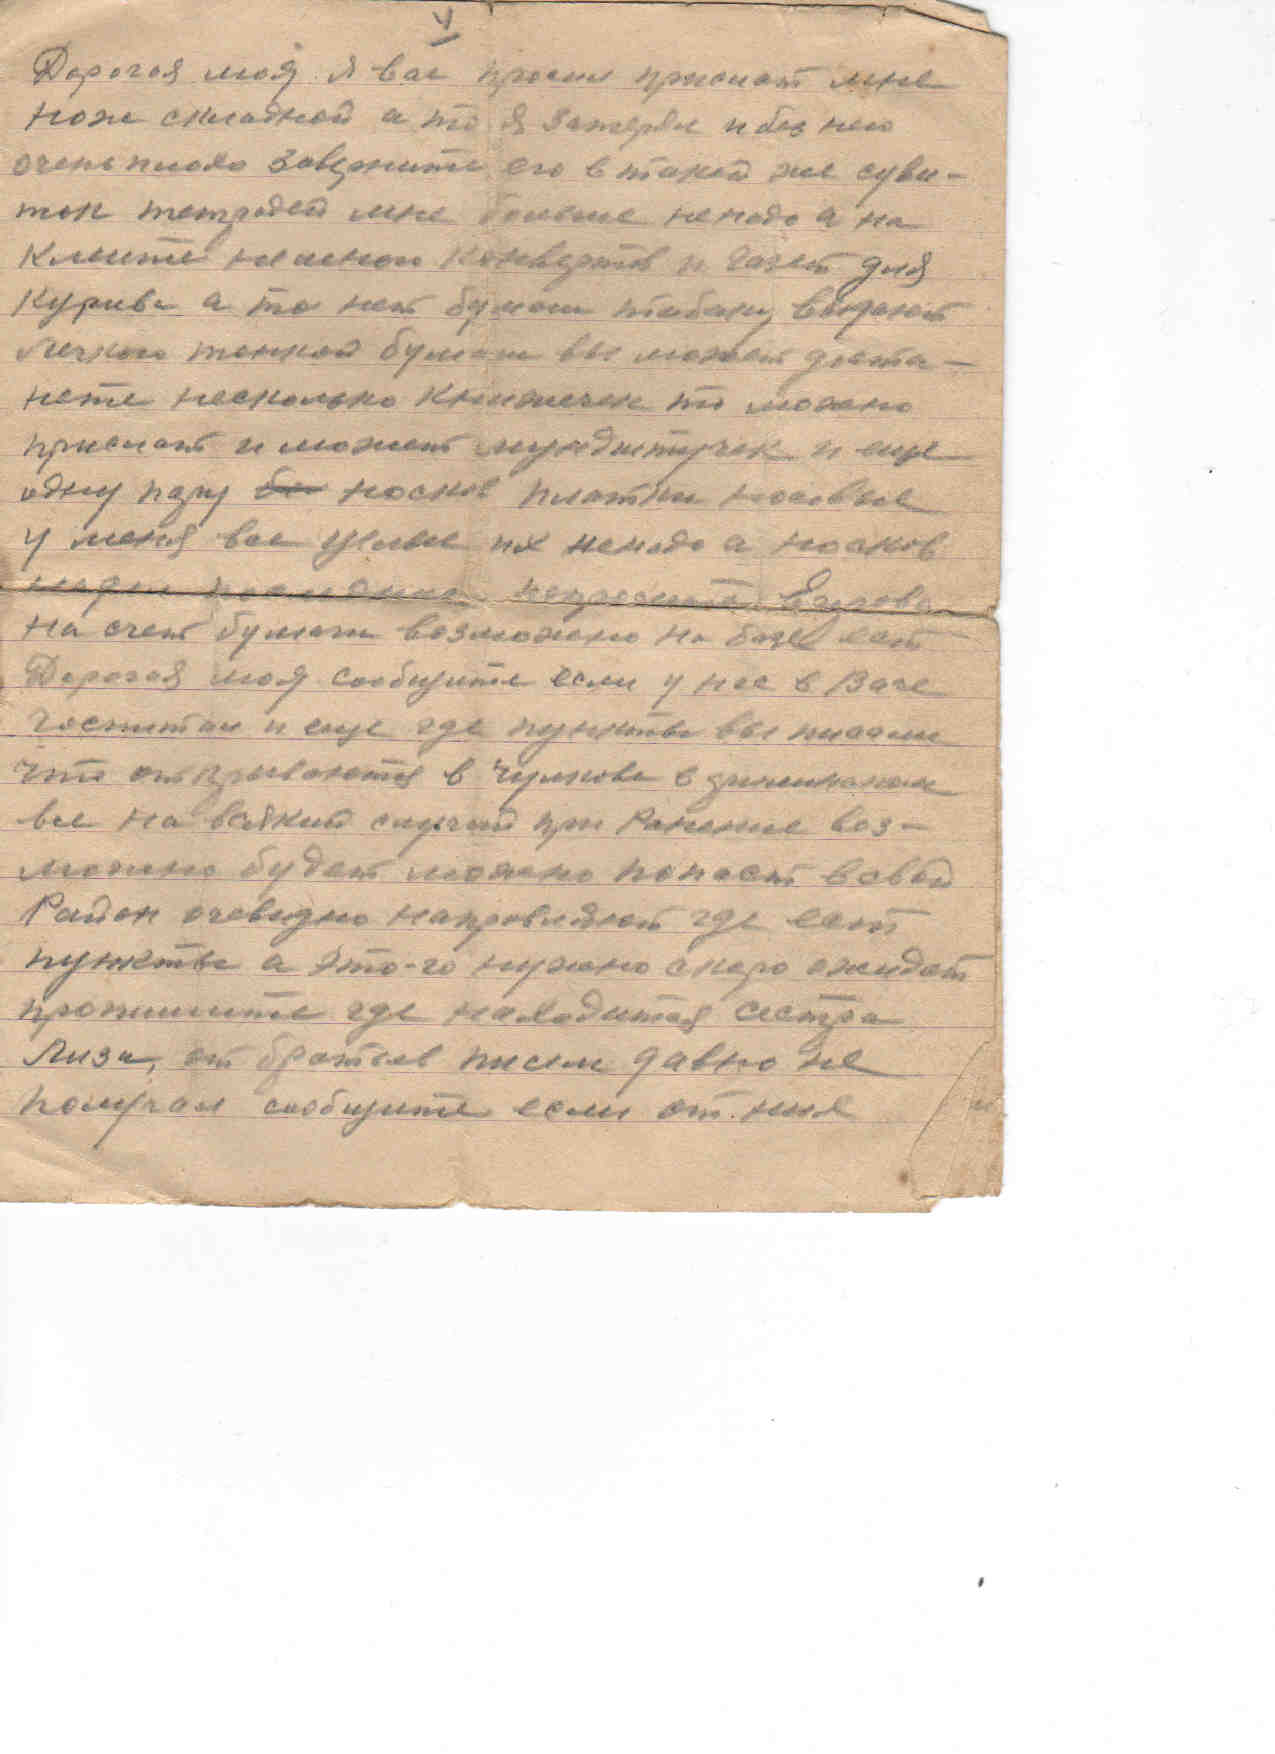 Дорогая моя я вас просил прислат мне
нож складной а то я затерял и без него
очень плохо заверните его в такой же суви-
ток тетрадей мне больше ненадо а на
клейте немного конвертов и газет для
курива а то нет бумаги табаку выдают
легкого тонкой бумаги вы может доста-
нете несколько книжечек то можно
прислат и может мундштучек и еще
одну пару носков платки носовые
у меня все целые их ненадо а носков
попросите
на счет бумаги возможно на базе ест
Дорогая моя сообщите если у нас в Ваче
госпитал и еще где пункты вы писали
что открываются в Чулкове в
все на всякий случай при Ранение воз-
можно будет можно попаст в свой
Район очевидно направляют где ест
пункты а это-го нужно скоро ожидат
пропишите где находится сестра
Лиза, от братьев писем давно не
получал сообщите если от них